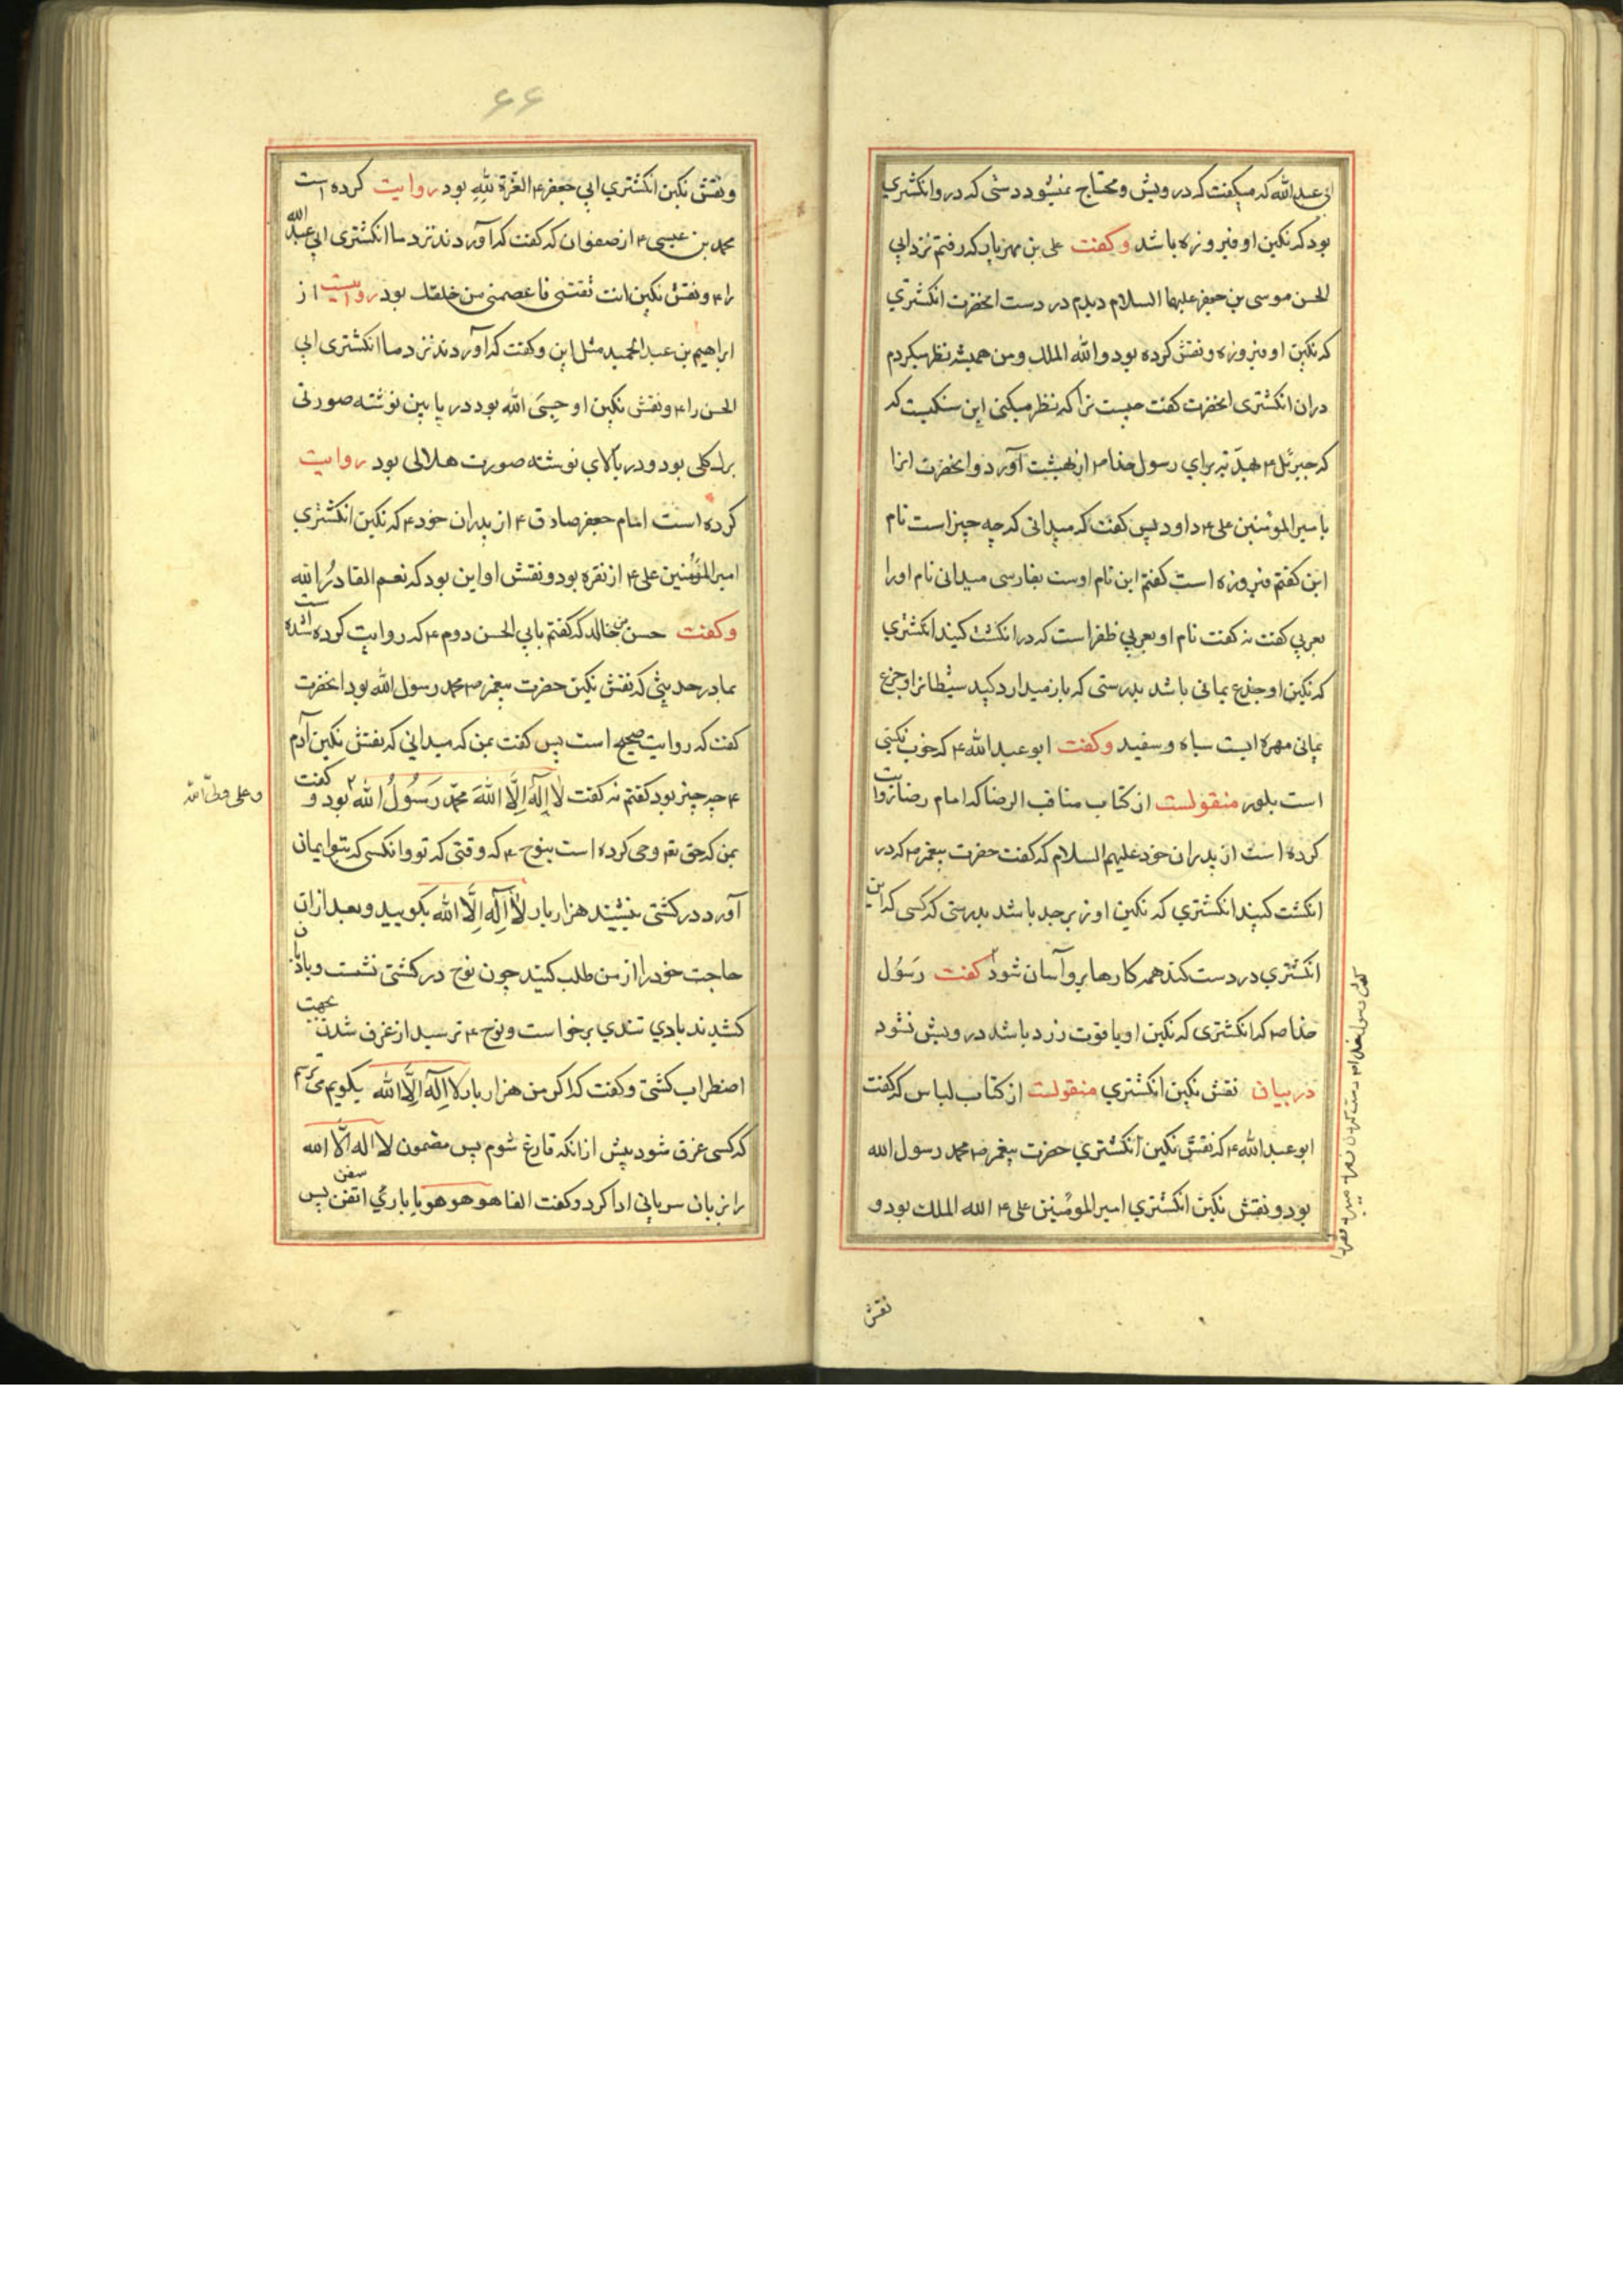 ابی عبدالله که میکفت که درویش و محتاج نمیشود دستی که در وانکشتری
بود که نکین او فیروزه باشد وکفت علی بن مهزیار که رفتم نزد ابی
الحسن موسی بن جعفر علیهما السلام دیدم در دست انحضرت انکشتری
که نکین او فیروزه و نقش کرده بود والله الملک و من همیشه نظر میکردم
دران انکشتری انحضرت کفت چیست ترا که نظر میکنی این سنکیست که
که جبرئل ۴ هدیّه برای رسول خدا ص از بهشت آورد و انحضرت انرا
بامیر المومنین علی ۴ داد پس کفت که میدانی که چه چیز است نام
این کفتم فیروزه است کفتم این نام اوست بفارسی میدانی نام او را
بعربی کفت نه کفت نام او بعربی ظفر است که در انکشت کنید انکشتری
که نکین او جزع یمانی باشد بدرستی که باز میدارد کید شیطانرا وجزع
یمانی مهره ایست سیاه وسفید وکفت ابو عبدالله ۴ که خوب نکینی
است بلور منقولست از کتاب مناقب الرضا که امام رضا روایت
کرده است از پدران خود علیهم السلام که کفت حضرت پیغمبر ص که در
انکشت کنید انکشتری که نکین او زبرجد باشد بدرستی که کسی که این
انکشتری در دست کند همه کارها برو آسان شود کفت رَسُول
خدا ص که انکشتری که نکین او یاقوت زرد باشد درویش نشود
در بیان نقش نکین انکشتری منقولست از کتاب لباس که کفت
ابو عبدالله ۴ که نقش نکین انکشتری حضرت پیغمبر ص محمد رسول الله
بود و نقش نکین انکشتری امیر المومنین علی ۴ الله الملک بود و
نقش
۶۶
ونقش نکین انکشتری ابی جعفر ۴ العّزة لِلّهِ بود روایت کرده است
محمد بن عیسی ۴ از صفوان که کفت که آوردند نزد ما انکشتری ابی عبد الله
را ۴ ونقش نکین انت ثقتی فاعصمنی من خلقك بود روایت از
ابراهیم بن عبد الحمید مثل این وکفت که آوردند نزد ما انکشتری ابی
الحسن را ۴ ونقش نکین او حَسبیَ الله بود در پایین نوشته صورتی
برك کلی بود و در بالای نوشته صورت هلالی بود روایت
کرده است امام جعفر صادق ۴ از پدران خود ۴ که نکین انکشتری
امیر المؤمنین علی ۴ از نقره بود و نقش او این بود که نعم القادرُ الله
وکفت حسن بن خالد که کفتم بابی الحسن دوم ۴ که روایت کرده شده است
بما در حدیثی که نقش نکین حضرت پیغمبر ص محمد رسول الله بود انحضرت
کفت که روایت صحیح است پس کفت بمن که میدانی که نقش نکین آدم
۴ چه چیز بود کفتم نه کفت لا اِلهَ اِلَّا اللهَ محمّد رَسُوُلُ الله بود و کفت
وعلی ولیّ الله
بمن که حق تع وحی کرده است بنوح ۴ که وقتی که تو وانکسی که بتو ایمان
آورد در کشتی بنشیند هزار بار لا اِلهَ اِلَّا الله بکویید و بعد ازان
حاجت خود را از من طلب کنید چون نوح در کشتی نشست و بادبان
کشیدند بادی تندی برخواست ونوح ۴ ترسید از غرق شدن بجهت
اضطراب کشتی وکفت که اکر من هزار بار لا اِلهَ اِلَّا الله بکویم می ترسم
که کسی غرق شود پیش از انکه فارغ شوم پس مضمون لا اله الّا الله
را بزبان سریانی ادا کرد وکفت الفا هو هو هو یا باری اتفن پس
سفن